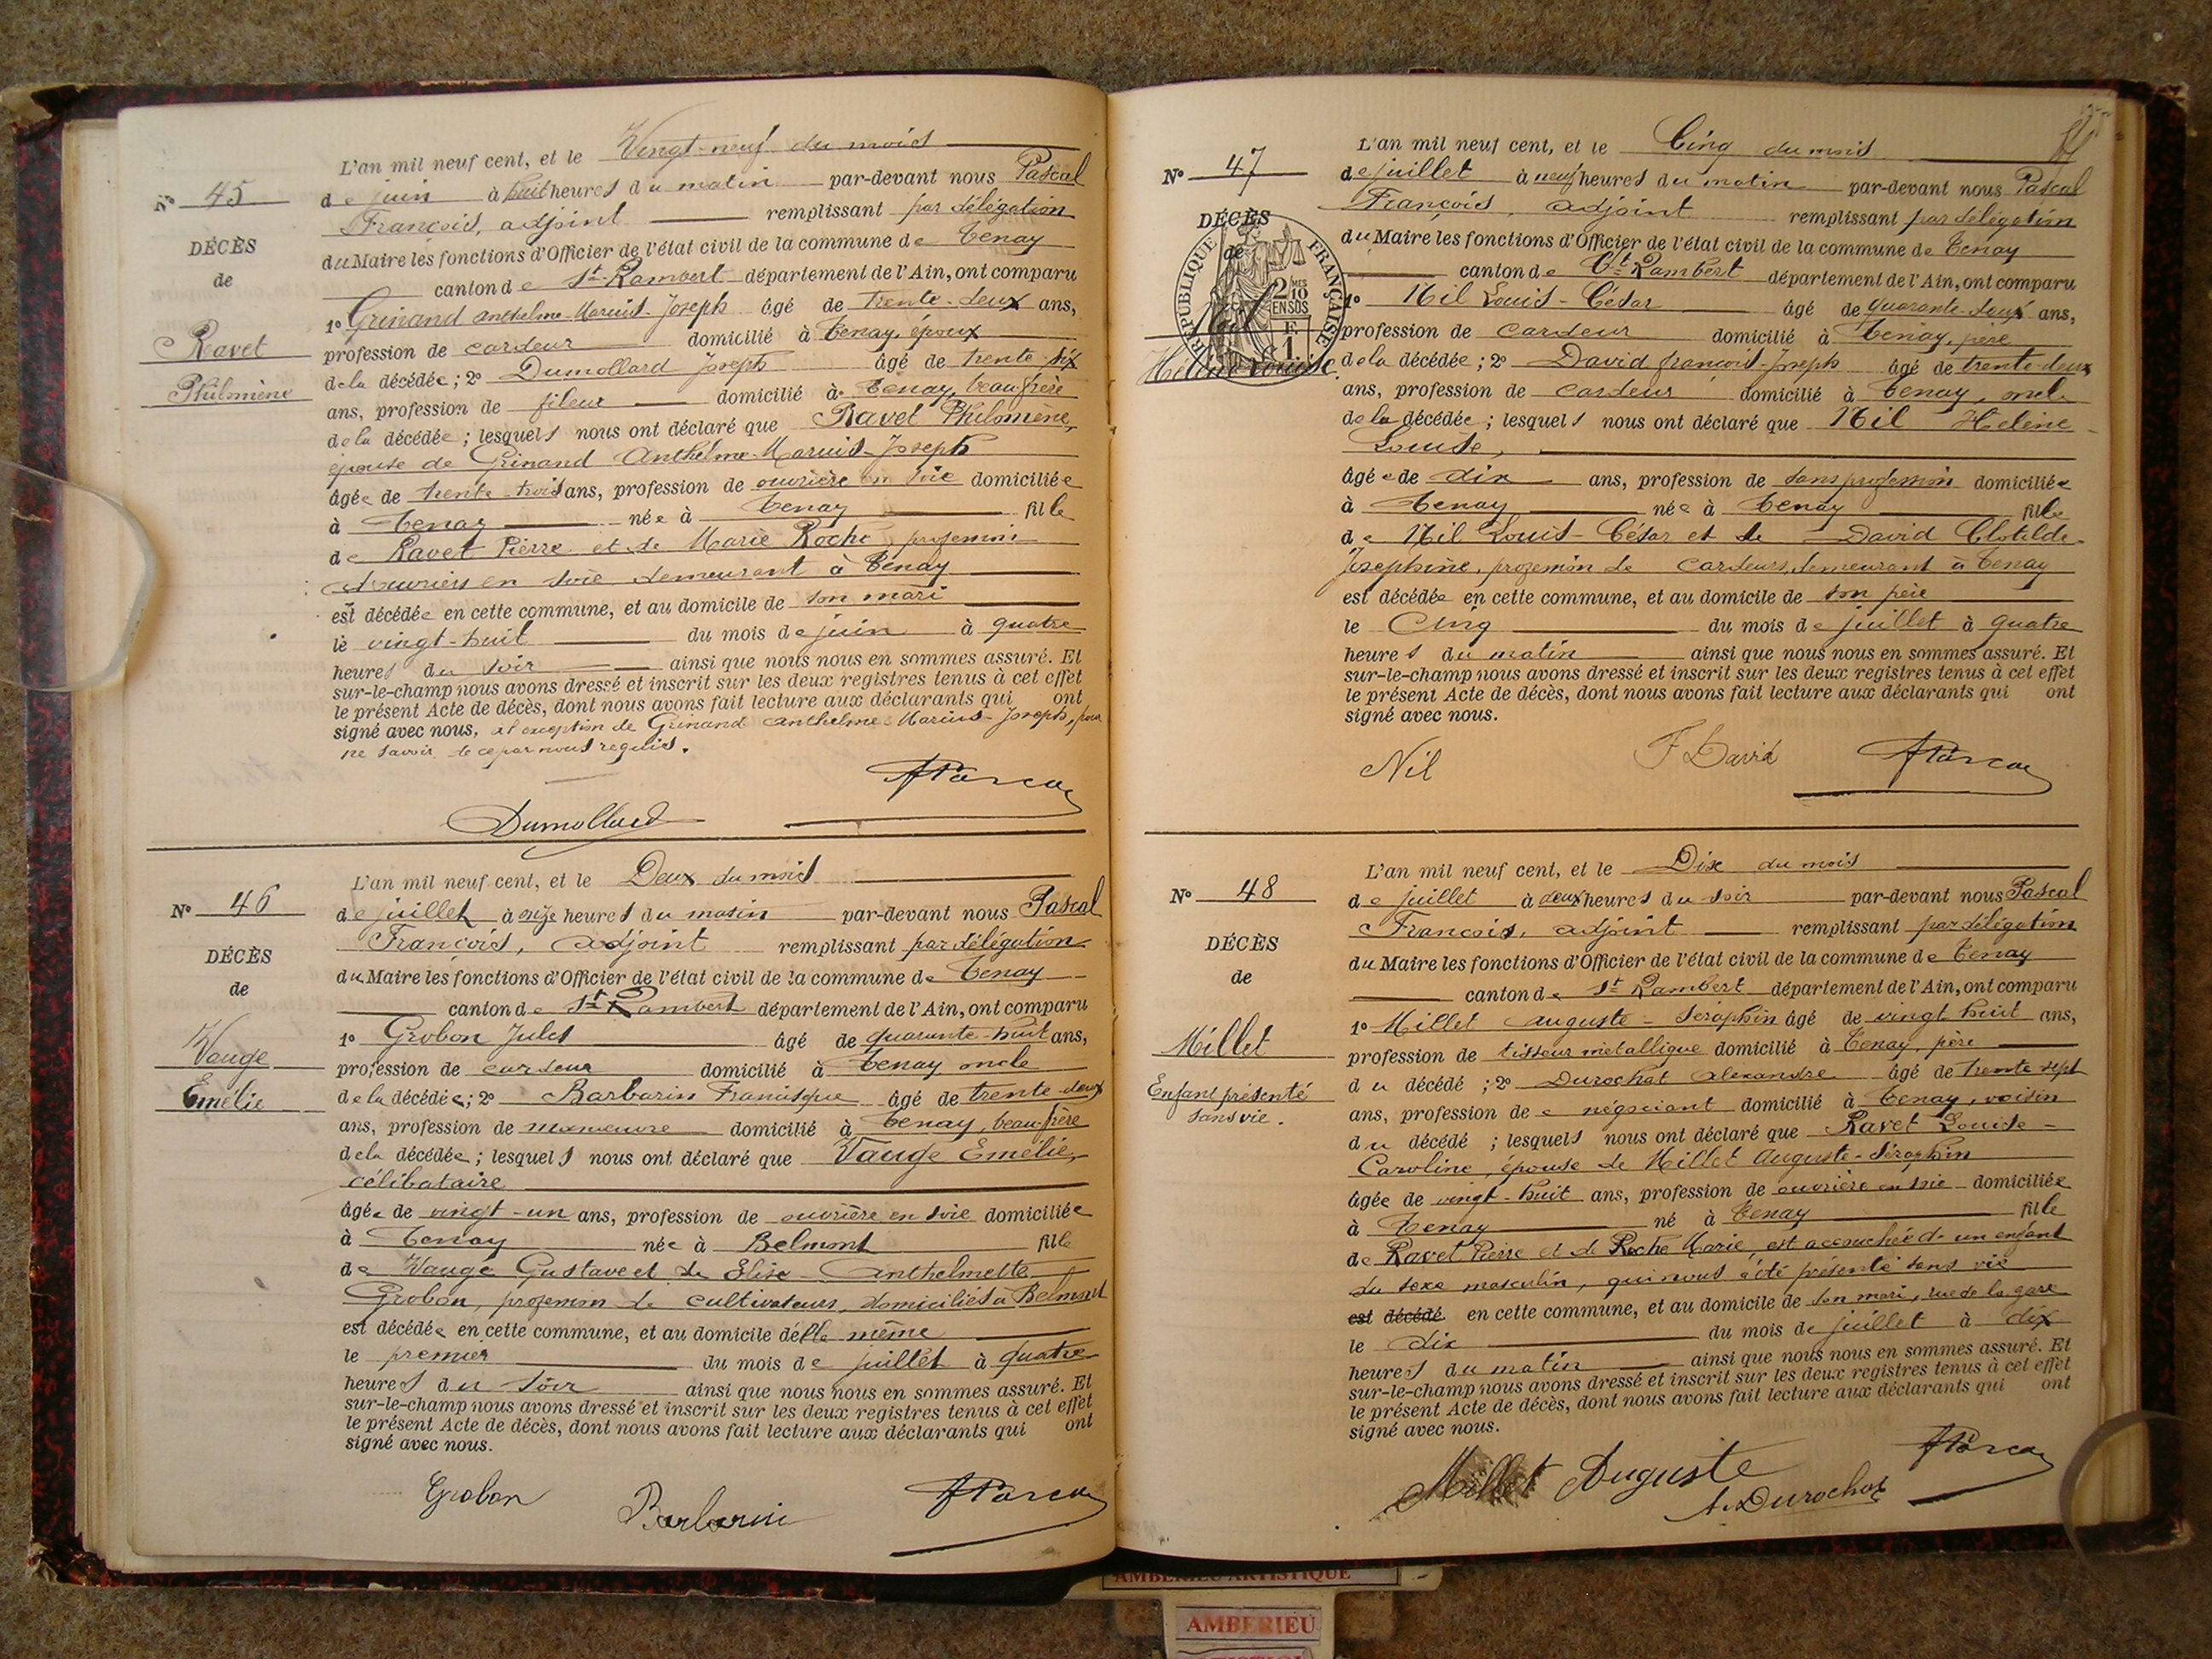 L'an mil neuf cent, et le Vingt-neuf du mois
Nº 45
de juin à huit heures du matin par-devant nous Pascal
François, adjoint remplissant par délégation
DÉCÈS
du Maire les fonctions d'Officier de l'état civil de la commune de Tenay
de
canton de St-Rambert département de l'Ain, ont comparu
1º Grinand Anthelme-Marius-Joseph âgé de trente-deux ans,
Ravet
profession de cardeur domicilié à Tenay, époux
de la décédée; 2º Dumollard Joseph âgé de trente-six
Philomène
ans, profession de fileur domicilié à Tenay, beau-frère
de la décédée; lesquels nous ont déclaré que Ravet Philomène,
épouse de Grinand Anthelme-Marius-Joseph
âgée de trente trois ans, profession de ouvrière en soie domiciliée
à Tenay née à Tenay fille
de Ravet Pierre et de Marie Roche, profession
d'ouvriers en soie demeurant à Tenay
est décédée en cette commune, et au domicile de son mari
le vingt-huit du mois de juin à quatre
heures du soir ainsi que nous nous en sommes assuré. Et
sur-le-champ nous avons dressé et inscrit sur les deux registres tenus à cet effet
le présent Acte de décès, dont nous avons fait lecture aux déclarants qui ont
signé avec nous, à l'exception de Grinand Anthelme-Marius-Joseph, pour
ne savoir de ce par nous requis.
APascal
Dumollard
L'an mil neuf cent, et le Deux du mois
Nº 46
de juillet à onze heures du matin par-devant nous Pascal
François, adjoint remplissant par délégation
DÉCÈS
du Maire les fonctions d'Officier de l'état civil de la commune de Tenay
de
canton de St Rambert département de l'Ain, ont comparu
1º Grobon Jules âgé de quarante-huit ans,
Vauge
profession de cardeur domicilié à Tenay oncle
Emélie
de la décédée; 2º Barbarin Francisque âgé de trente-deux
ans, profession de manœuvre domicilié à Tenay, beau-frère
de la décédée; lesquels nous ont déclaré que Vauge Emélie,
célibataire
âgée de vingt-un ans, profession de ouvrière en soie domiciliée
à Tenay née à Belmont fille
de Vauge Gustave et de Elise-Anthelmette
Grobon, profession de cultivateurs, domiciliés à Belmont
est décédée en cette commune, et au domicile d'elle même
le premier du mois de juillet à quatre
heures du soir ainsi que nous nous en sommes assuré. Et
sur-le-champ nous avons dressé et inscrit sur les deux registres tenus à cet effet
le présent Acte de décès, dont nous avons fait lecture aux déclarants qui ont
signé avec nous.
Grobon Barbarin APascal
L'an mil neuf cent, et le Cinq du mois
Nº 47
de juillet à neuf heures du matin par-devant nous Pascal
François, adjoint remplissant par délégation
DÉCÈS
du Maire les fonctions d'Officier de l'état civil de la commune de Tenay
de
RÉPUBLIQUE FRANÇAISE
2 MES
10
EN SUS
F
1
canton de St Rambert département de l'Ain, ont comparu
1º Nil Louis-César âgé de quarante-deux ans,
Nil
profession de cardeur domicilié à Tenay, père
Hélène Louise
de la décédée; 2º David François-Joseph âgé de trente-deux
ans, profession de cardeur domicilié à Tenay, oncle
de la décédée; lesquels nous ont déclaré que Nil Hélène-
Louise,
âgée de dix ans, profession de sans profession domiciliée
à Tenay née à Tenay fille
de Nil Louis-César et de David Clotilde-
Joséphine, profession de cardeurs, demeurant à Tenay
est décédée en cette commune, et au domicile de son père
le Cinq du mois de juillet à quatre
heures du matin ainsi que nous nous en sommes assuré. Et
sur-le-champ nous avons dressé et inscrit sur les deux registres tenus à cet effet
le présent Acte de décès, dont nous avons fait lecture aux déclarants qui ont
signé avec nous.
Nil F David APascal
L'an mil neuf cent, et le Dix du mois
Nº 48
de juillet à deux heures du soir par-devant nous Pascal
François, adjoint remplissant par délégation
DÉCÈS
du Maire les fonctions d'Officier de l'état civil de la commune de Tenay
de
canton de St Rambert département de l'Ain, ont comparu
1º Millet Auguste-Séraphin âgé de vingt huit ans,
Millet
profession de tisseur métallique domicilié à Tenay, père
du décédé; 2º Durochat Alexandre âgé de trente sept
Enfant présenté
sans vie.
ans, profession de négociant domicilié à Tenay, voisin
du décédé; lesquels nous ont déclaré que Ravet Louise-
Caroline, épouse de Millet Auguste-Séraphin
âgée de vingt-huit ans, profession de ouvrière en soie domiciliée
à Tenay né à Tenay fille
de Ravet Pierre et de Roche Marie, est accouchée d'un enfant
du sexe masculin, qui nous a été présenté sans vie
est décédé en cette commune, et au domicile de son mari, rue de la gare
le dix du mois de juillet à dix
heures du matin ainsi que nous nous en sommes assuré. Et
sur-le-champ nous avons dressé et inscrit sur les deux registres tenus à cet effet
le présent Acte de décès, dont nous avons fait lecture aux déclarants qui ont
signé avec nous.
Millet Auguste A. Durochat APascal
AMBERIEU ARTISTIQUE
AMBERIEU